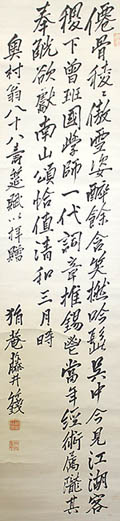 僊骨稜々傲雪姿醉餘含笑撚吟髭呉中今見江湖客
稷下曾班國學師一代詞章推錫鬯當年經術属隴其
奉觥欲獻南山頌恰値清和三月時
奥村翁八十八壽莚賦以拝贈
藤井